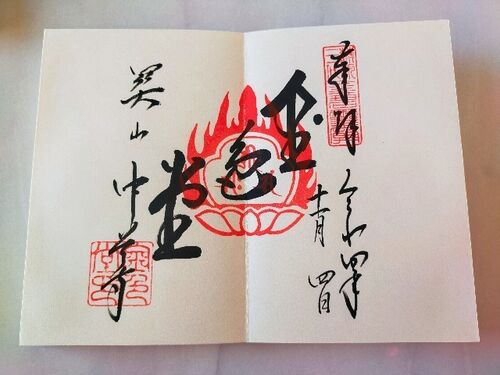 奉拝
令和四年
十一月四日
金色堂
関山中尊寺